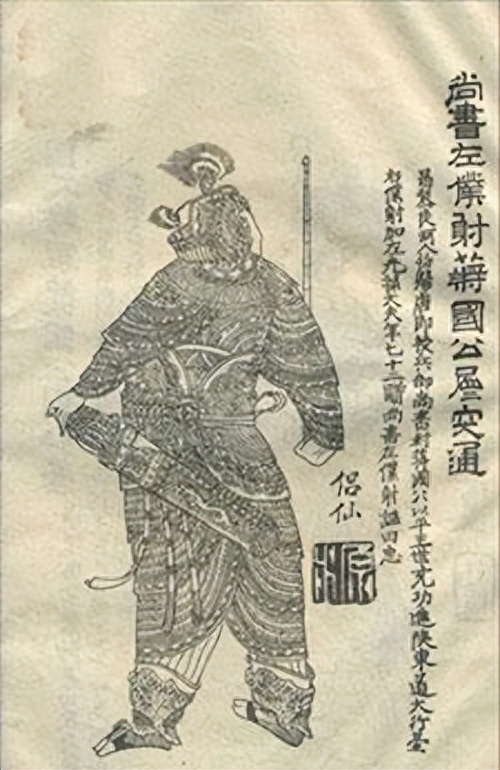 尚書左僕射蔣國公屈突通
歸唐即授兵部尚書封蔣國公以平王世充功進陝東道大行臺
右僕射加左光祿大夫年七十二贈尚書左僕射謚曰忠
侶仙